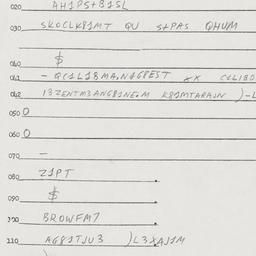 020 AH1PS+B1SL
030 SKOCLK81MT QU S+PAS QHUM
040 $
041 - QC1L18MA.NG8EST XX CCLIBO
042 13ZENTM3ANG81NE.M K81MTARAJN )-L
050 O
060 O
070 -
080 Z1PT
090 $
100 BROWFM7
110 AG81TJU3 )L3XAJ1M